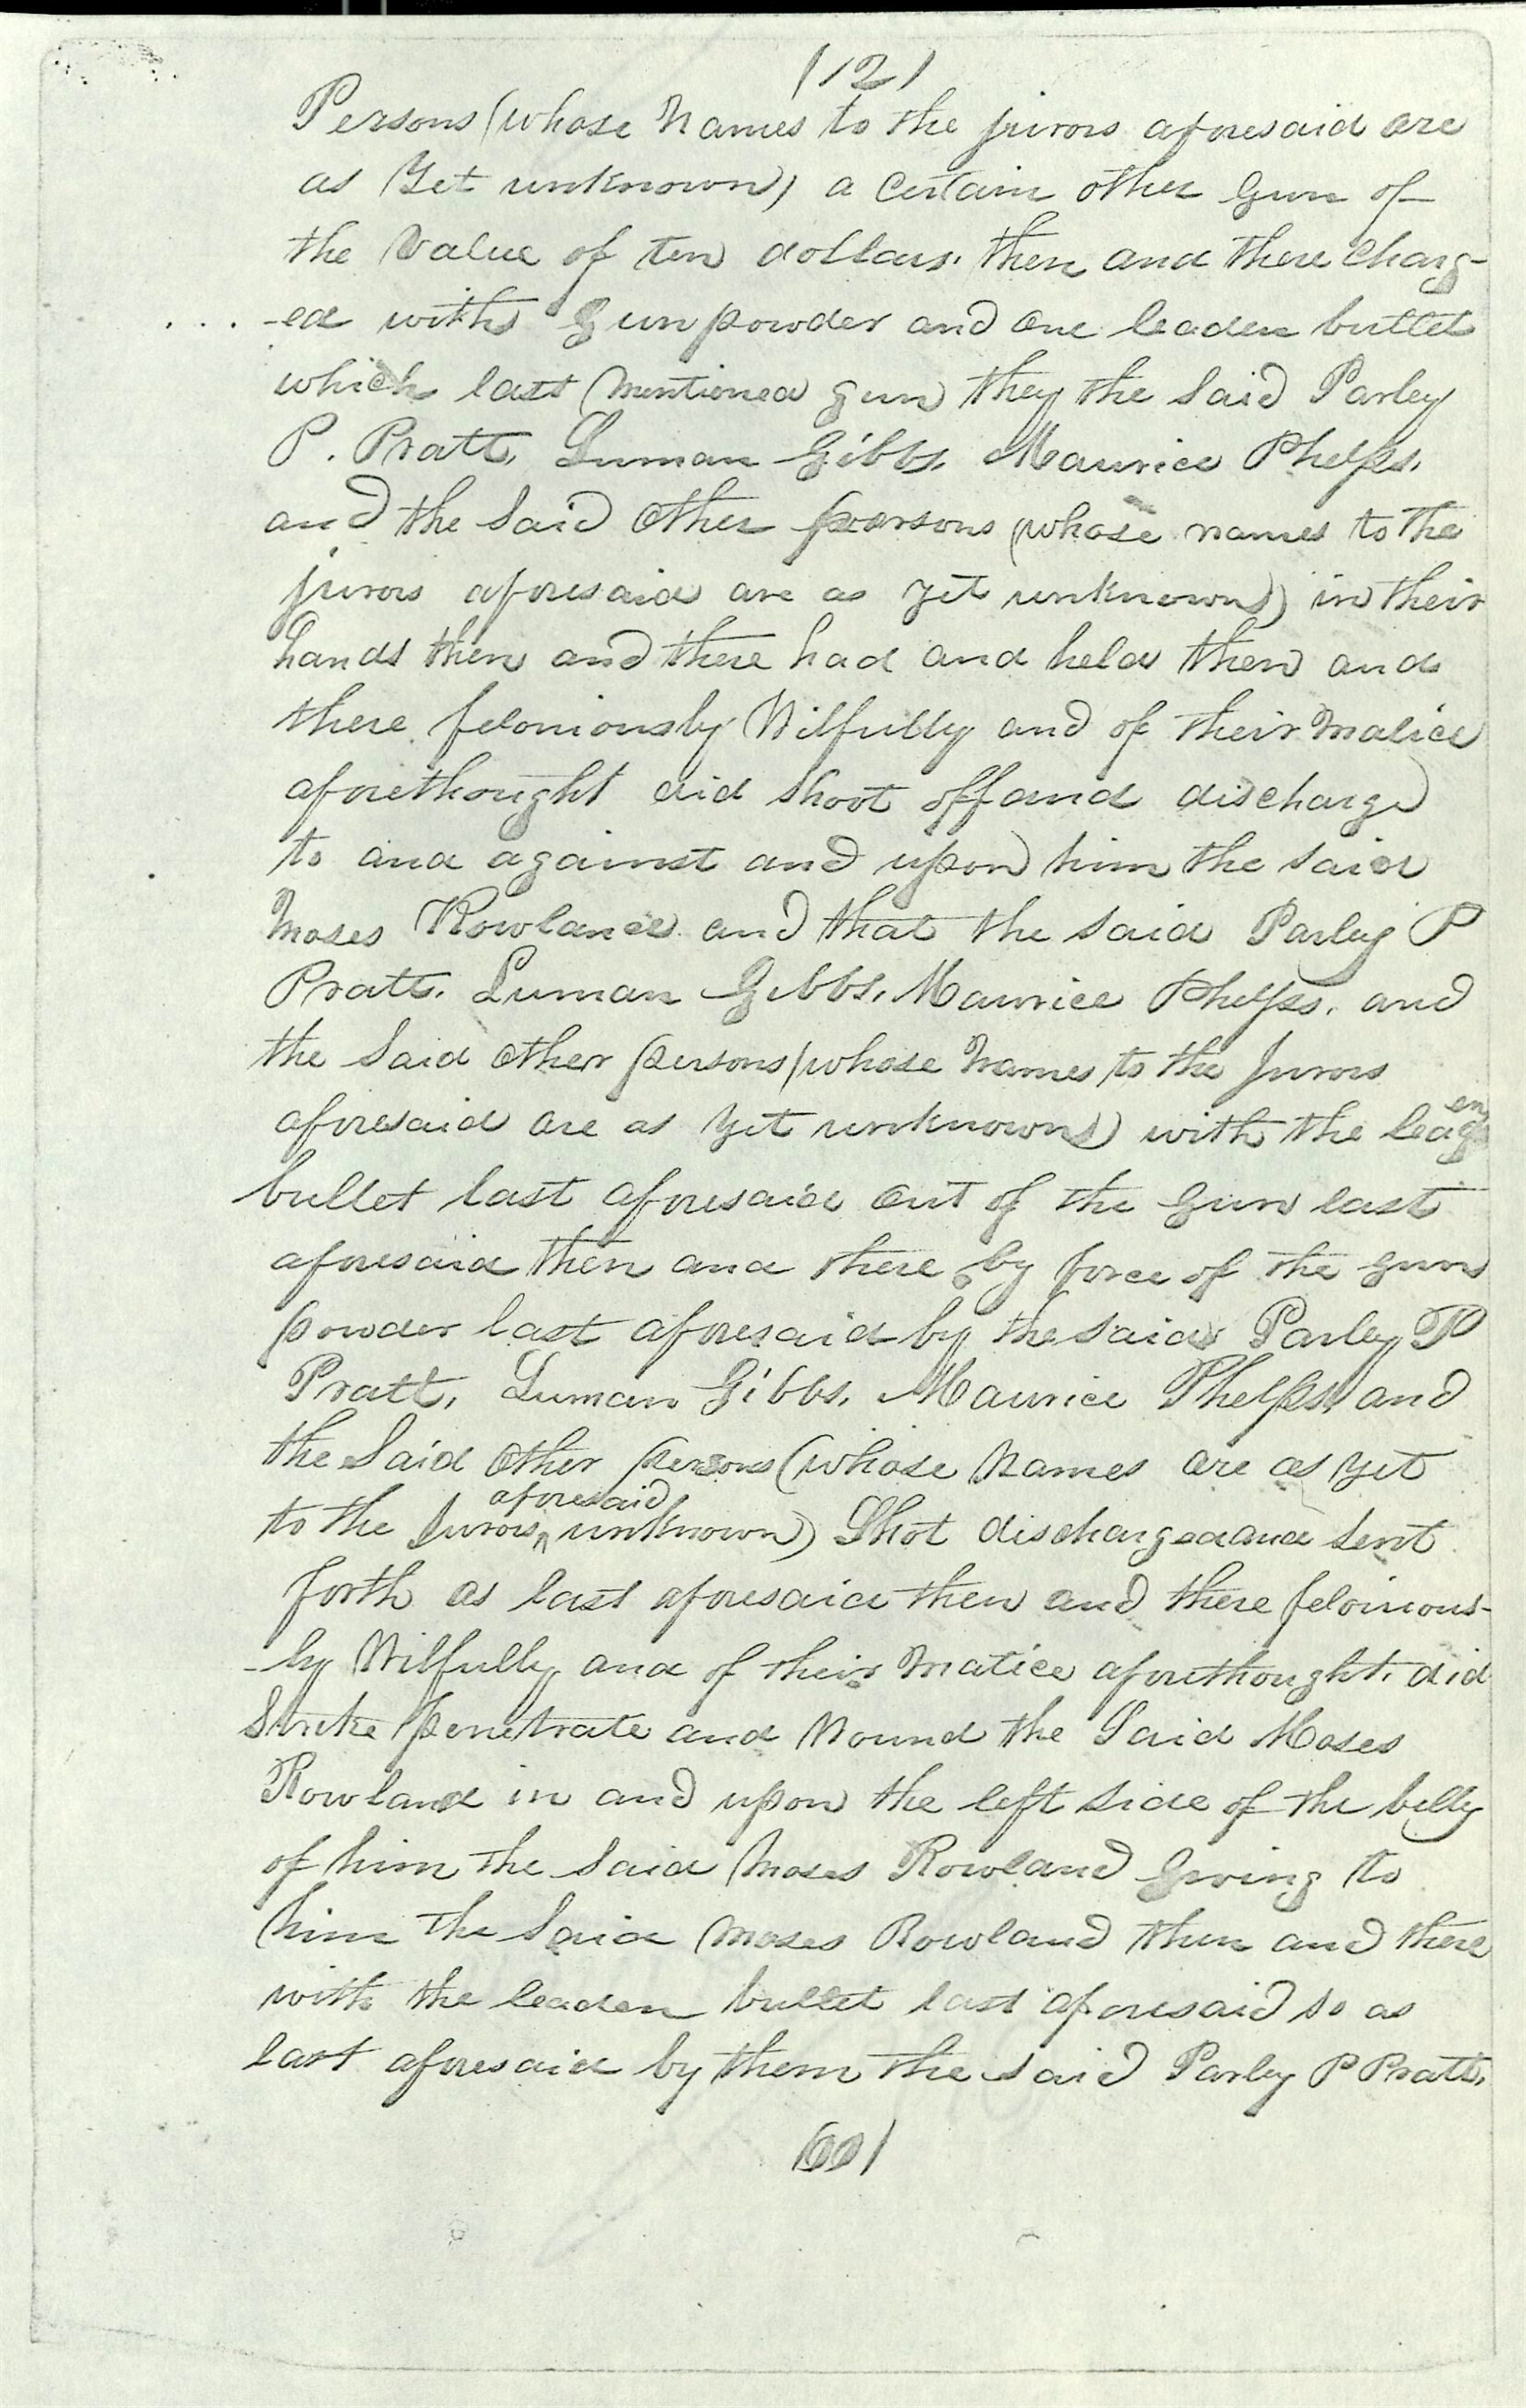 (12)
Persons (whose Names to the jurors aforesaid are
as Yet unknown) a certain other Gun of
the Value of ten dollars. then and there Charg-
-ed with Gunpowder and one leaden bullet
which last Mentioned gun they the Said Parley
P. Pratt, Luman Gibbs, Maurice Phelps,
and the Said Other pearsons (whose names to the
jurors aforesaid are as yet unknown) in their
hands then and there had and held then and
there feloniously Wilfully and of their Malice
aforethought did shoot off and discharge
to and against and upon him the said
Moses Rowland and that the said Parley P
Pratt. Luman Gibbs, Maurice Phelps. and
the Said other persons (whose Names to the Jurors
aforesaid are as yet unknown) with the leaden
bullet last aforesaid out of the Gun last
aforesaid then and there by force of the gun
powder last aforesaid by the said Parley P
Pratt, Luman Gibbs, Maurice Phelps, and
the Said other persons (whose Names are as yet
to the Jurors aforesaid unknown) Shot discharged and sent
forth as last aforesaid then and there feloinous-
-ly Wilfully and of their Malice aforethought. did
Strike penetrate and Wound the Said Moses
Rowland in and upon the left side of the belly
of him the Said Moses Rowland Giving to
him the Said Moses Rowland then and there
with the leaden bullet last aforesaid so as
last aforesaid by them the said Parley P Pratt,